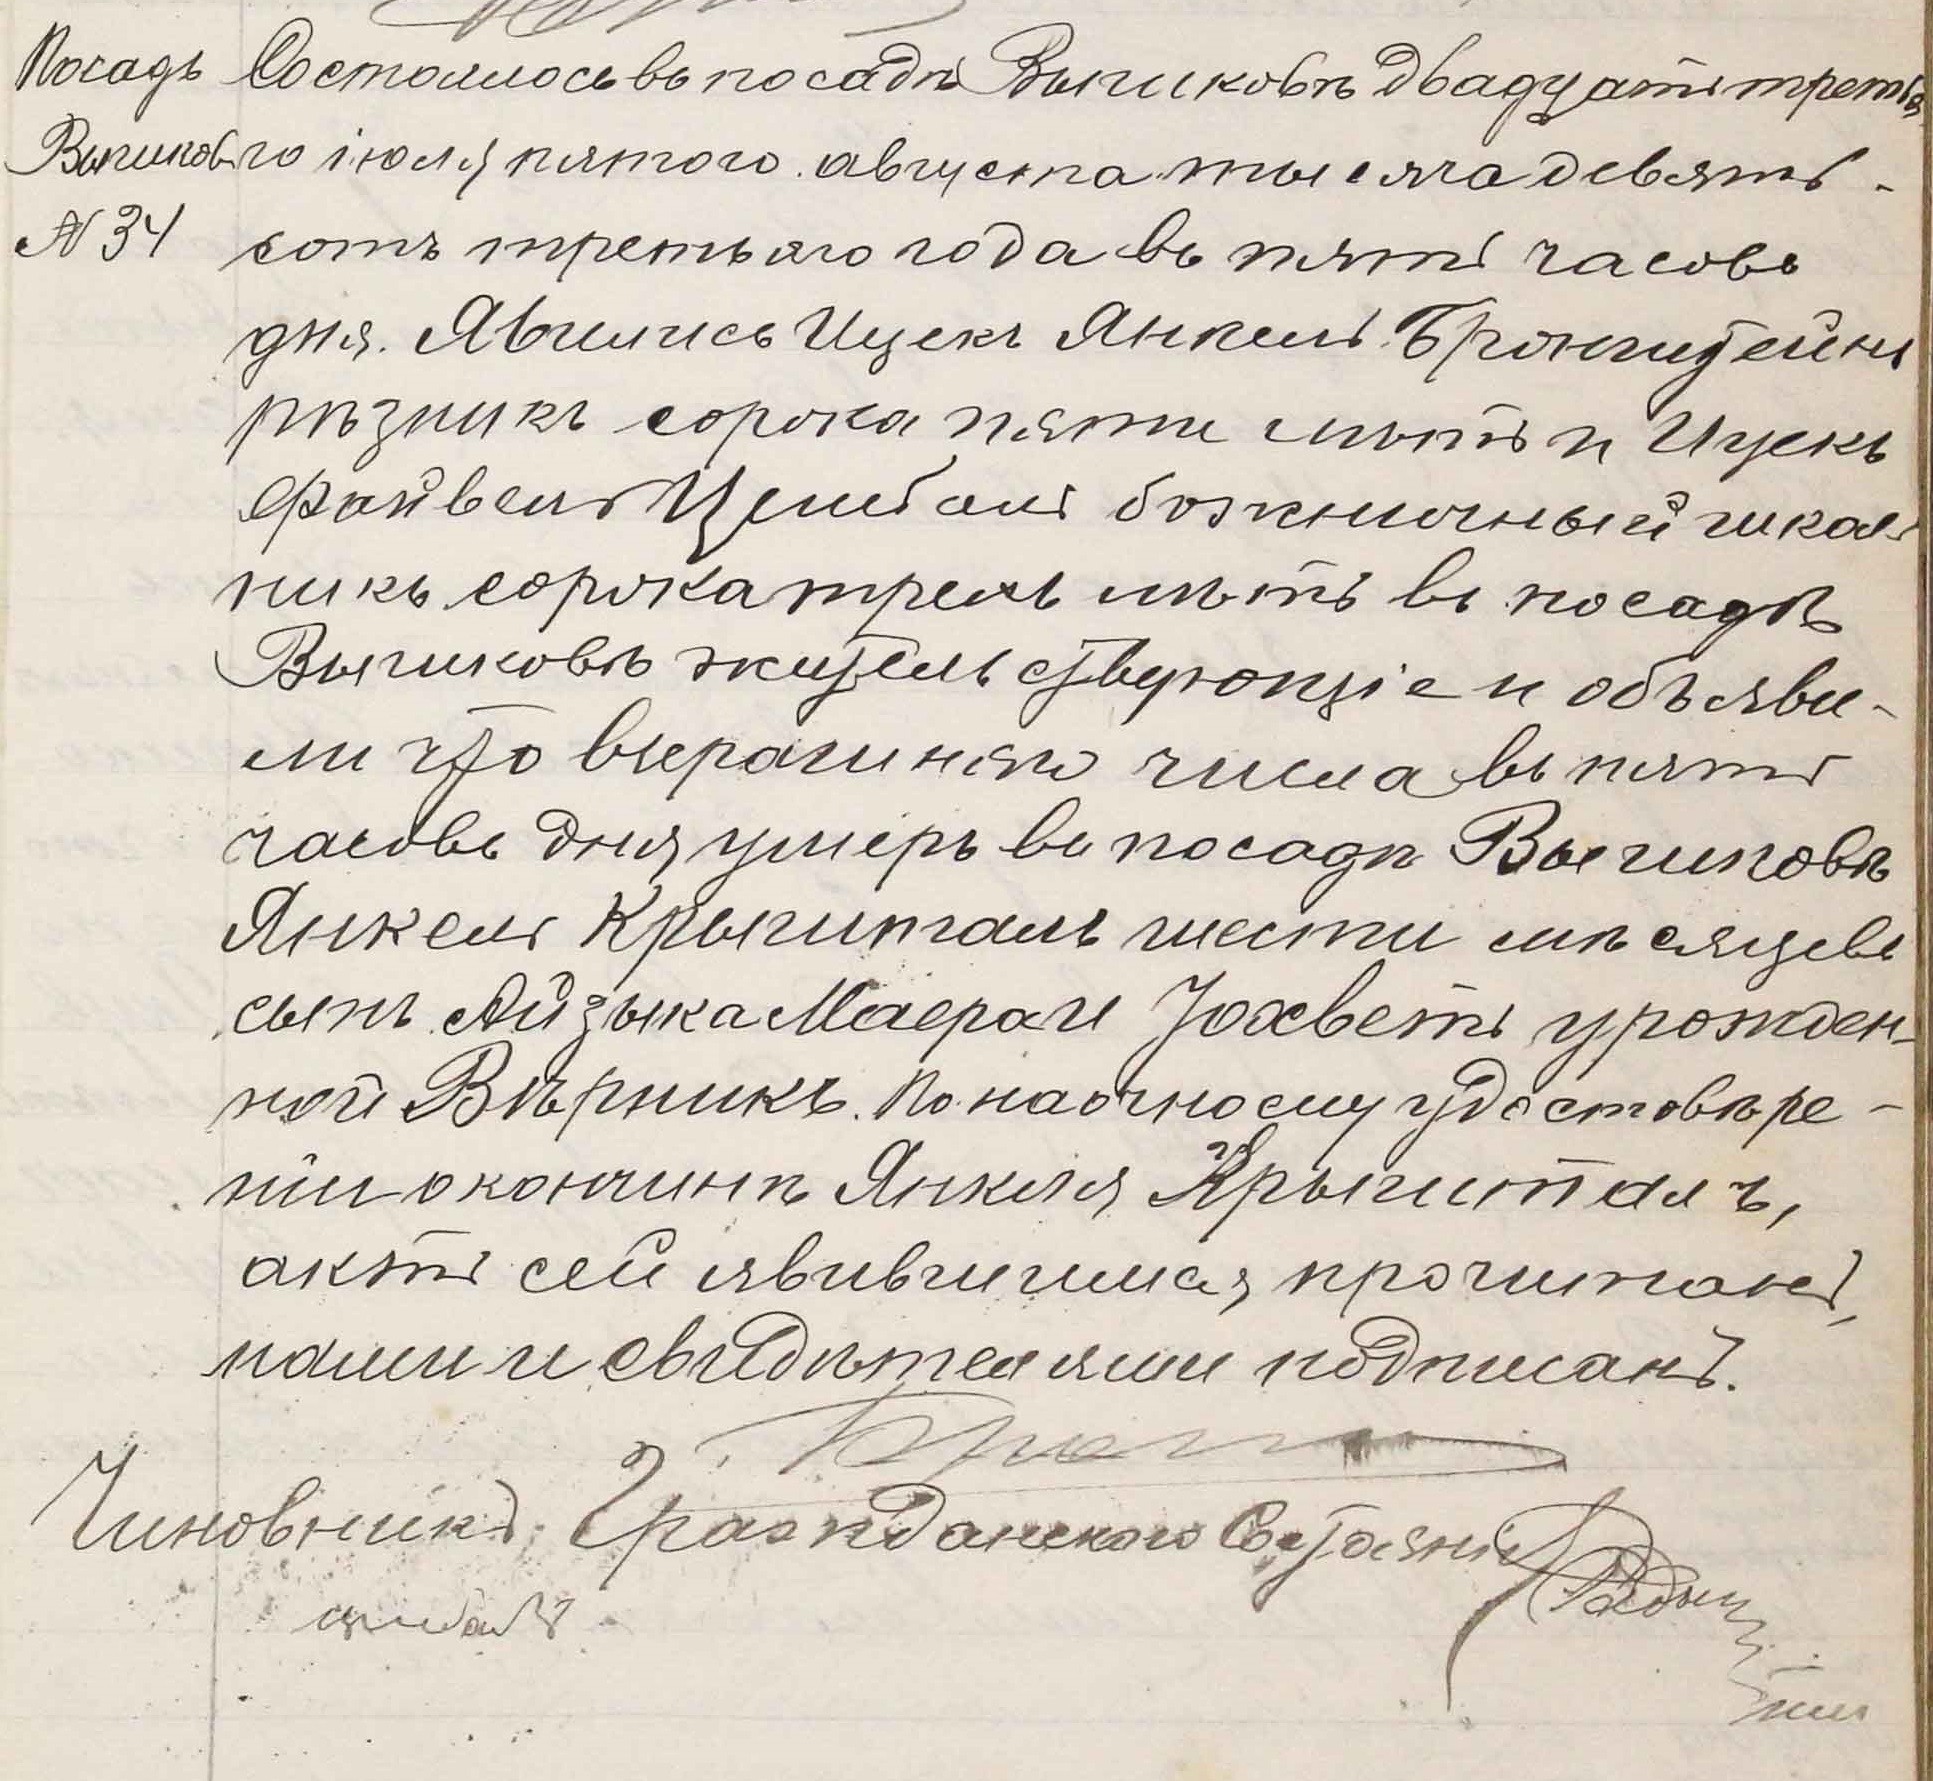 Посадъ
Вышковъ
N 34
Состоялось въ посадѣ Вышковѣ двадцать третья
го іюля, пятого августа тысяча девять-
сотъ третьяго года въ пять часовъ
дня. Явились Ицекъ Янкель Бронштейнъ
рѣзникъ сорока пяти лѣтъ и Ицекъ
Файвель Цымбалъ божничный школь
никъ сорока трехъ лѣтъ въ посадѣ
Вышковѣ жительствующіе и объяви-
ли что вчерашняго числа въ пять
часовъ дня умеръ въ посадѣ Вышковѣ
Янкель Крышталъ шести мѣсяцевъ
сынъ Айзыка Маера и Іохветъ урожден-
ной Вѣрникъ. По наочному удостовѣре-
ніи о кончинѣ Янкеля Крышталъ,
актъ сей явившимся, прочитанъ,
нами и свидѣтелями подписанъ.
Чиновникъ Гражданского Состоянія